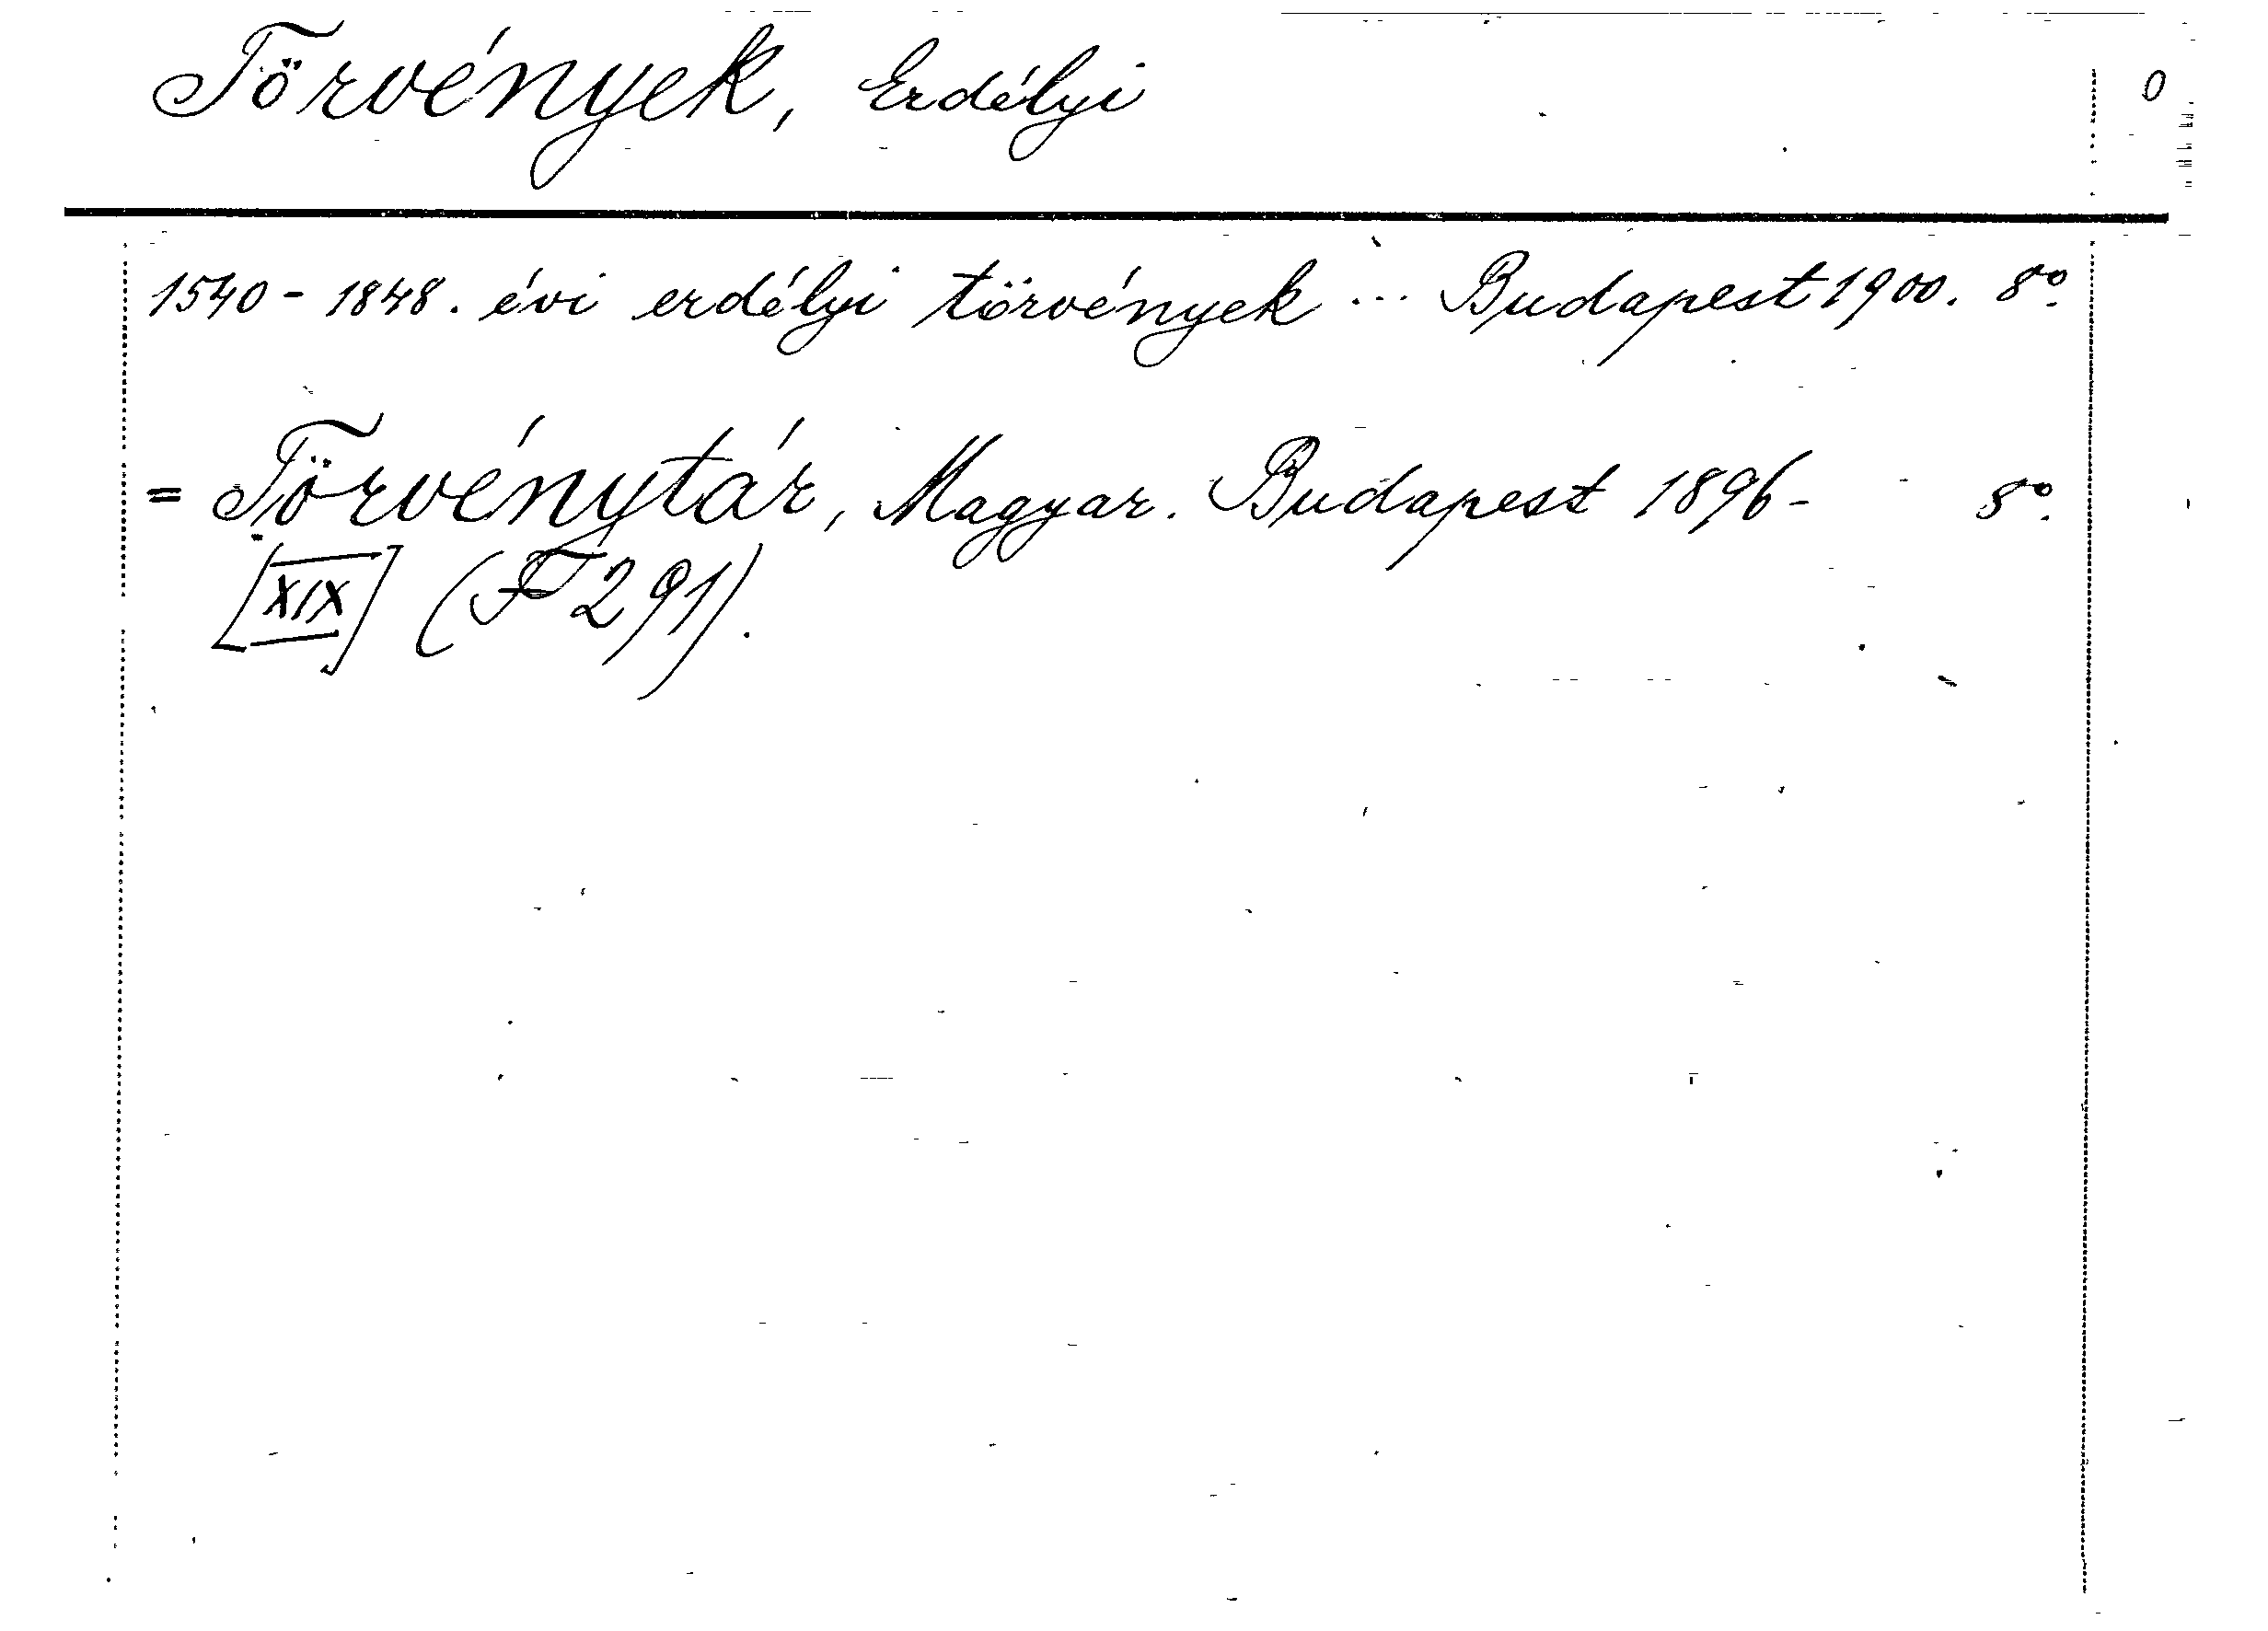 Törvények, Erdélyi 0
1540-1848. évi erdélyi törvények ... Budapest 1900. 8º.
= Törvénytár, Magyar. Budapest 1896- 8º.
[XIX] (F 291).